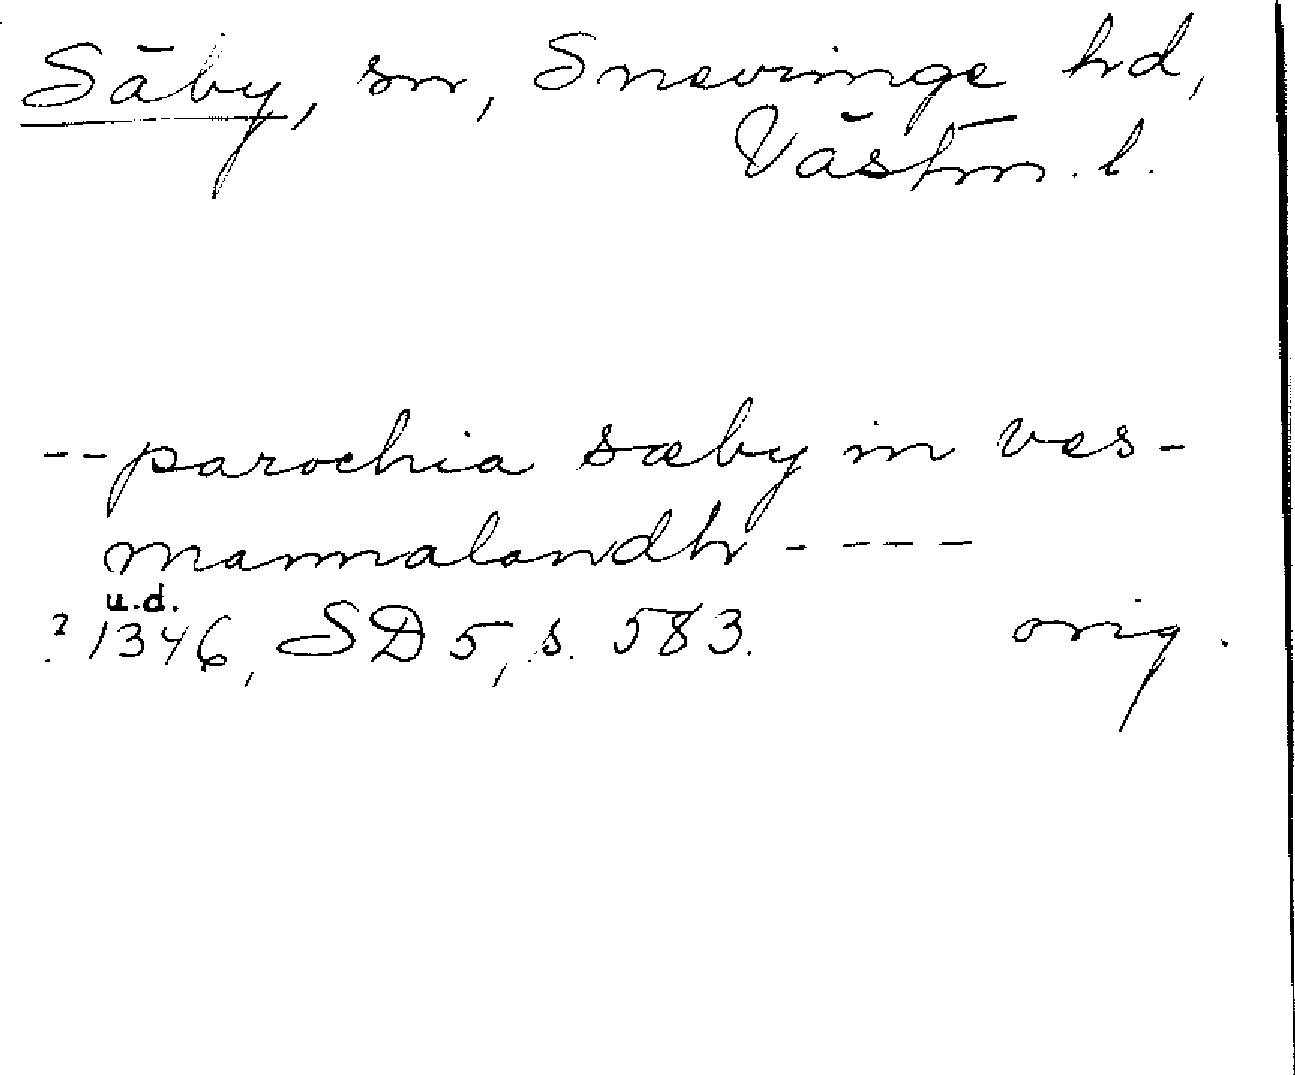 Säby, sn, Snevringe hd,
Västm. l.
-- parochia sæby in ves-
mannalandh - ----
u.d.
? 1346, SD 5, s. 583. orig.